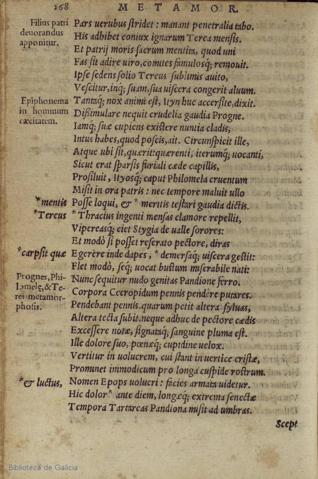 168 METAMOR.
Filius patri
deuorandus
apponitur.
Pars uerubus stridet: manant penetralia tabo.
His adhibet coniux ignarum Terea mensis.
Et patrij moris sacrum mentita, quod uni
Fas sit adire uiro, comites famulosq́; remouit.
Ipse sedens solio Tereus sublimis auito,
Vescitur, inq́; suam, sua uiscera congerit aluum.
Epiphonema
in hominum
cæcitatem.
Tantaq́; nox animi est, Ityn huc accersite, dixit.
Dissimulare nequit crudelia gaudia Progne.
Iamq́; suæ cupiens existere nuntia cladis,
Intus habes, quod poscis, ait. Circunspicit ille,
Atque ubi sit, quærit: quærenti, iterumq́; uocanti,
Sicut erat sparsis furiali cæde capillis,
Prosiluit, Ityosq́; caput Philomela cruentum
Misit in ora patris: nec tempore maluit ullo
*mentis Posse loqui, & * meritis testari gaudia dictis.
*Tereus * Thracius ingenti mensas clamore repellit,
Vipereasq́; ciet Stygia de ualle sorores:
Et modò si posset reserato pectore, diras
*carpsit quæ Egerere inde dapes, * demersaq́; uiscera gestit:
Flet modò, seq́; uocat bustum miserabile nati:
Progne, Phi-
lomele, & Te-
rei metamor-
phosis.
Nunc sequitur nudo genitas Pandione ferro.
Corpora Cecropidum pennis pendere putares.
Pendebant pennis. quarum petit altera syluas,
Altera tecta subit. neque adhuc de pectore cædis
Excessere notæ, signataq́; sanguine pluma est.
Ille dolore suo, pœnæq́; cupidine uelox.
Vertitur in uolucrem, cui stant in uertice cristæ,
Prominet immodicum pro longa cuspide rostrum.
*& luctus, Nomen Epops uolucri: facies armata uidetur.
Hic dolor * ante diem, longæq́; extrema senectæ
Tempora Tartareas Pandiona misit ad umbras.
Scept
Biblioteca de Galicia